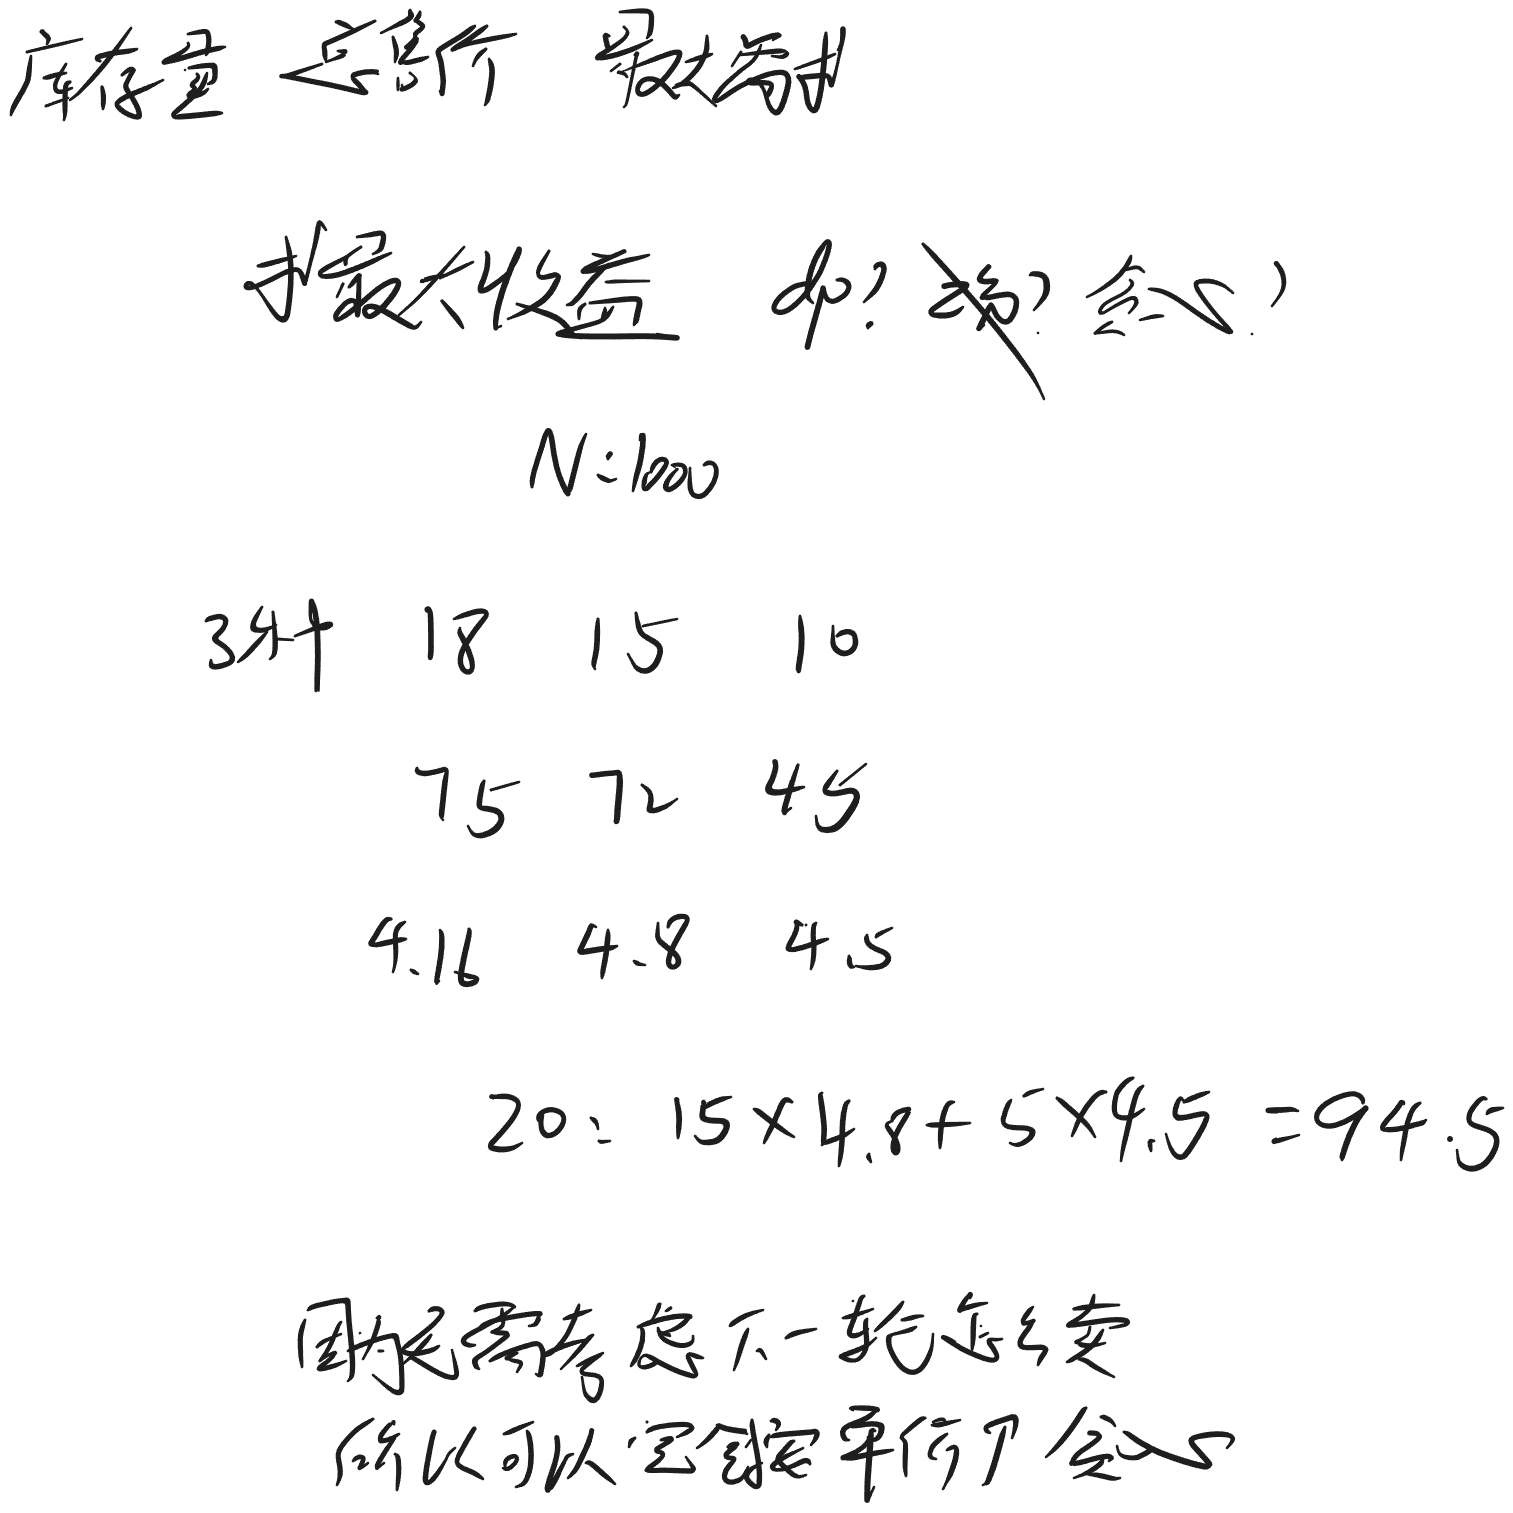 库存量 总售价 最大需求
求最大收益 dp? 贪心?
N=1000
3种 18 15 10
75 72 45
4.16 4.8 4.5
20: 15×4.8+5×4.5=94.5
因为无需考虑下一轮怎么卖
所以可以完全按单价 贪心